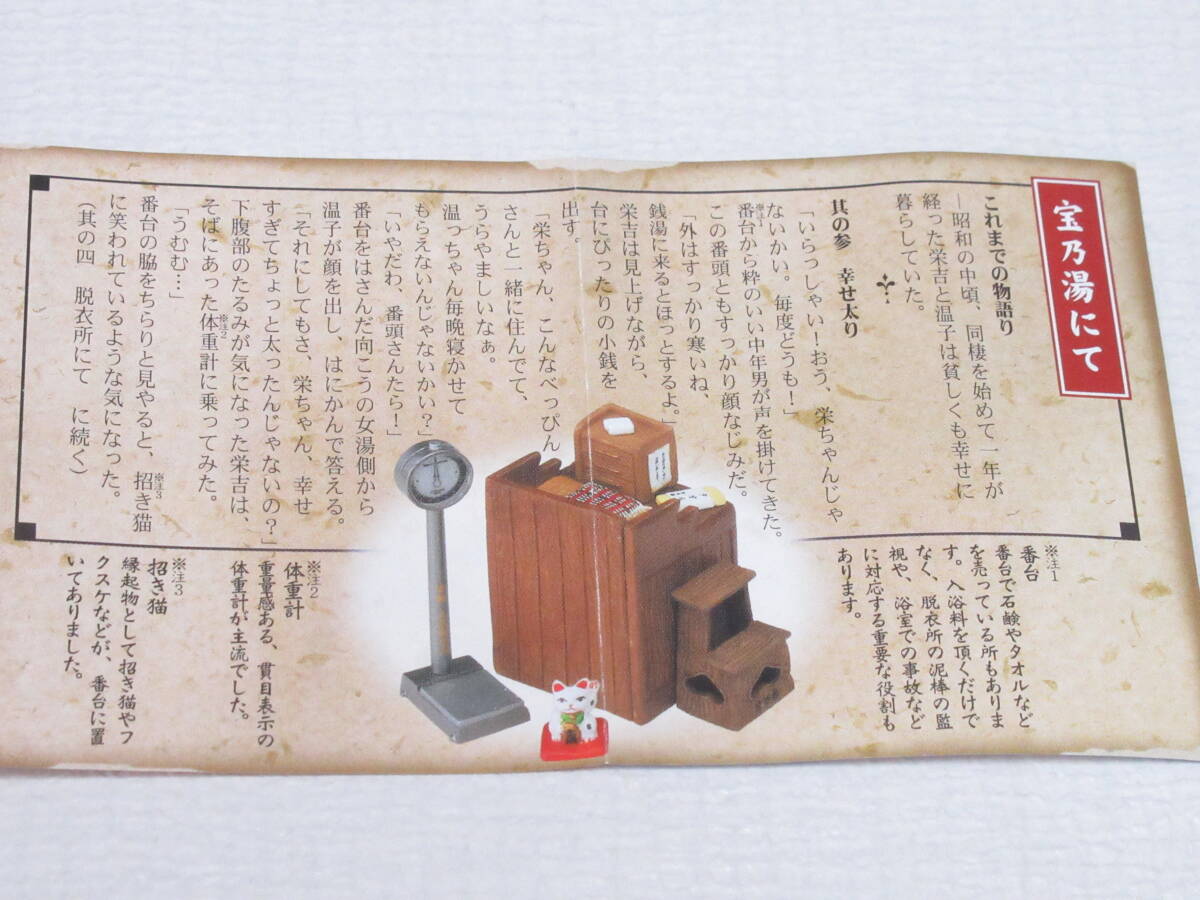 宝乃湯にて
これまでの物語り
―昭和の中頃、同棲を始めて一年が
経った栄吉と温子は貧しくも幸せに
暮らしていた。
其の参　幸せ太り
「いらっしゃい！おう、栄ちゃんじゃ
ないかい。毎度どうも！」
※注1
番台から粋のいい中年男が声を掛けてきた。
この番頭ともすっかり顔なじみだ。
「外はすっかり寒いね、
銭湯に来るとほっとするよ。」
栄吉は見上げながら、
台にぴったりの小銭を
出す。
「栄ちゃん、こんなべっぴん
さんと一緒に住んでて、
うらやましいなぁ。
温っちゃん毎晩寝かせて
もらえないんじゃないかい？」
「いやだわ、番頭さんたら！」
番台をはさんだ向こうの女湯側から
温子が顔を出し、はにかんで答える。
「それにしてもさ、栄ちゃん、幸せ
すぎてちょっと太ったんじゃないの？」
下腹部のたるみが気になった栄吉は、
※注2
そばにあった体重計に乗ってみた。
「うむむ…」
※注3
番台の脇をちらりと見やると、招き猫
に笑われているような気になった。
（其の四　脱衣所にて　に続く）
※注1
番台
番台で石鹸やタオルなど
を売っている所もありま
す。入浴料を頂くだけで
なく、脱衣所の泥棒の監
視や、浴室での事故など
に対応する重要な役割も
あります。
※注2
体重計
重量感ある、貫目表示の
体重計が主流でした。
※注3
招き猫
縁起物として招き猫やフ
クスケなどが、番台に置
いてありました。